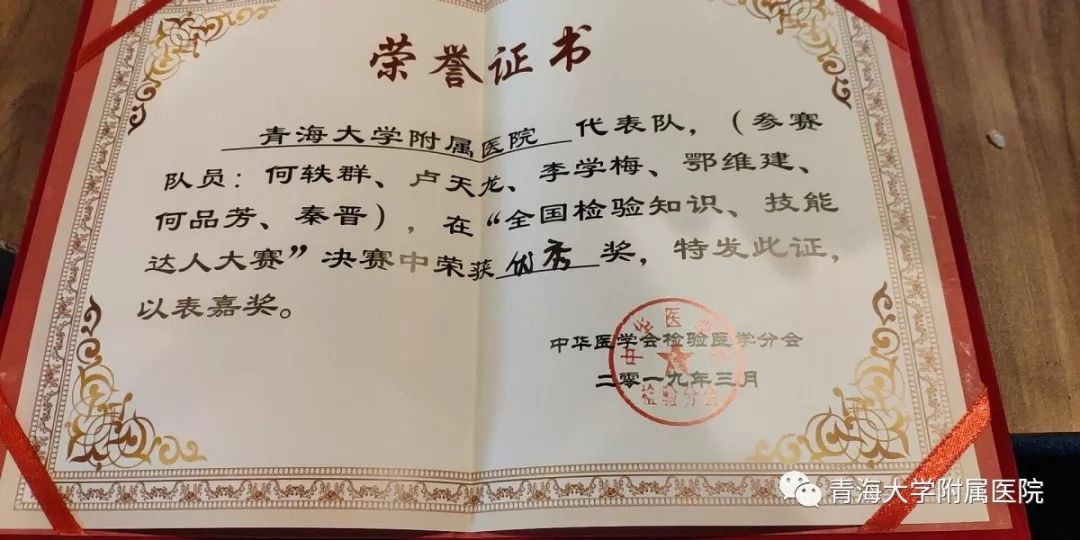 荣誉证书
青海大学附属医院 代表队，（参赛
队员：何轶群、卢天龙、李学梅、鄂维建、
何品芳、秦晋），在“全国检验知识、技能
达人大赛”决赛中荣获优秀奖，特发此证，
以表嘉奖。
中华医学会检验医学分会
二零一九年三月
中华医学会
检验分会
青海大学附属医院